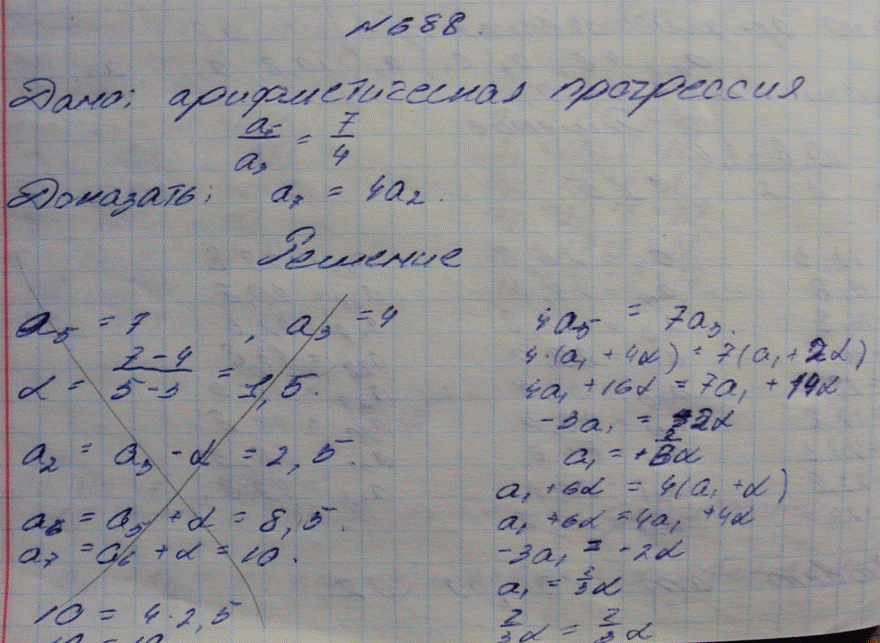 №688.
Дано: арифметическая прогрессия
a₅/a₃ = 7/4
Доказать: a₇ = 4a₂.
Решение
a₅ = 7, a₃ = 4
d = (7-4)/(5-3) = 1,5.
a₂ = a₃ - d = 2,5.
a₆ = a₅ + d = 8,5.
a₇ = a₆ + d = 10.
10 = 4·2,5
10 = 10
4a₅ = 7a₃.
4·(a₁ + 4d) = 7(a₁ + 2d)
4a₁ + 16d = 7a₁ + 14d
-3a₁ = -2d
a₁ = +2/3d
a₁ + 6d = 4(a₁ + d)
a₁ + 6d = 4a₁ + 4d
-3a₁ = -2d
a₁ = 2/3d
2/3d = 2/3d